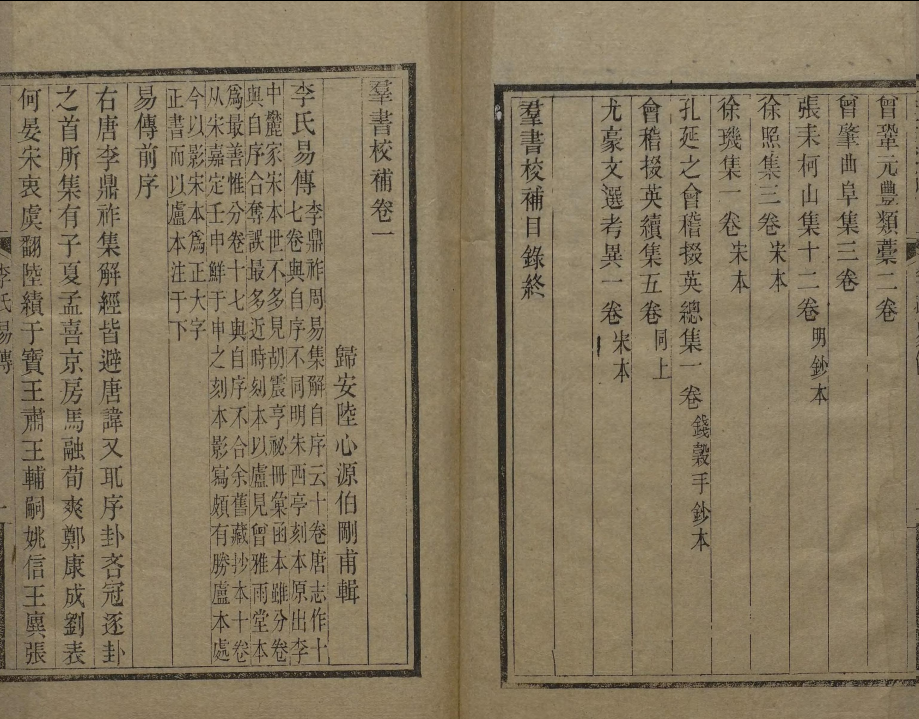 曾鞏元豐類藁二卷
曾肇曲阜集三卷
張耒柯山集十二卷明鈔本
徐照集三卷宋本
徐璣集一卷宋本
孔延之會稽掇英總集一卷錢穀手鈔本
會稽掇英續集五卷同上
尤袤文選考異一卷宋本
羣書校補目錄終
羣書校補卷一
歸安陸心源伯剛甫輯
李氏易傳
李鼎祚周易集解自序云十卷唐志作十
七卷與自序不同明朱西亭刻本原出李
中麓家宋本世不多見胡震亨祕冊彙函本雖分卷
與自序合奪誤最多近時刻本以盧見曾雅雨堂本
爲最善惟分卷十七與自序不合余舊藏抄本十卷
从宋嘉定壬申鮮于申之刻本影寫頗有勝盧本處
今以影宋本爲正大字
正書而以盧本注于下
易傳前序
右唐李鼎祚集解經皆避唐諱又取序卦各冠逐卦
之首所集有子夏孟喜京房馬融荀爽鄭康成劉表
何晏宋衷虞翻陸績于寶王肅王輔嗣姚信王廙張
李氏易傳
一